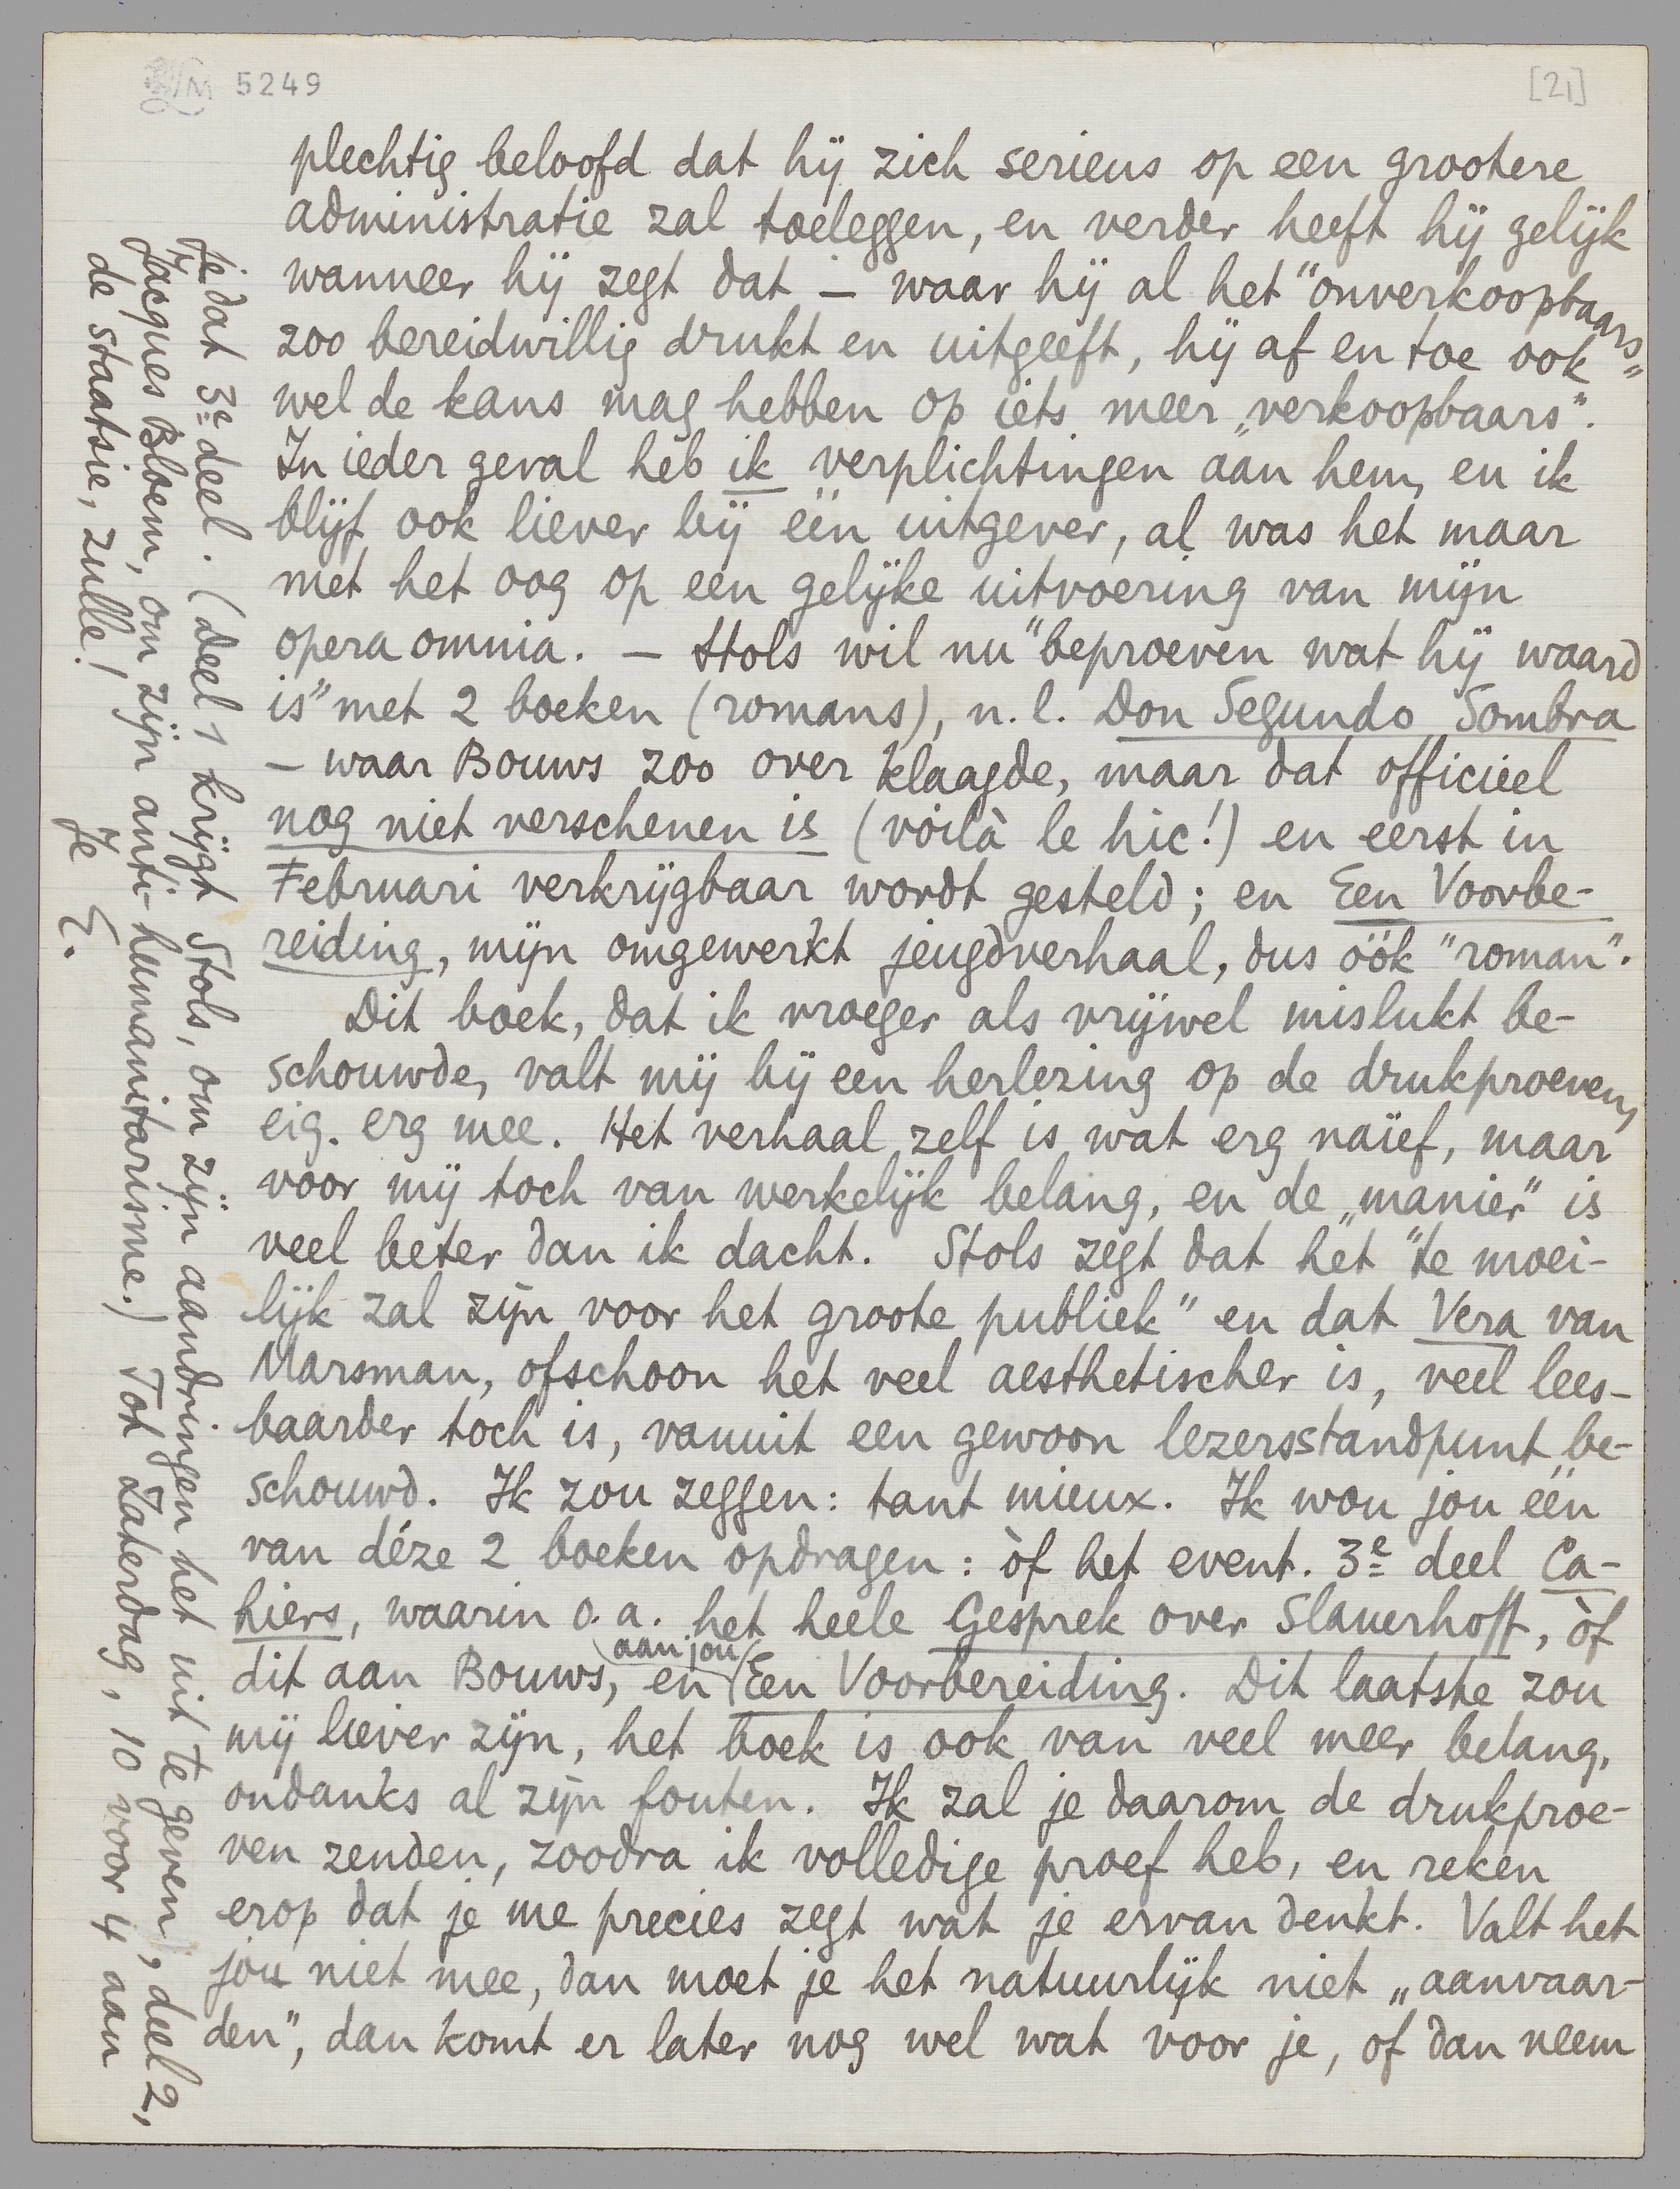 LM 5249
[21]
plechtig beloofd dat hij zich serieus op een grootere
administratie zal toeleggen, en verder heeft hij gelijk
wanneer hij zegt dat — waar hij al het "onverkoopbaars"
zoo bereidwillig drukt en uitgeeft, hij af en toe ook
wel de kans mag hebben op iets meer „verkoopbaars".
In ieder geval heb ik verplichtingen aan hem, en ik
blijf ook liever bij één uitgever, al was het maar
met het oog op een gelijke uitvoering van mijn
opera omnia. — Stols wil nu "beproeven wat hij waard
is" met 2 boeken (romans), n.l. Don Segundo Sombra
— waar Bouws zoo over klaagde, maar dat officieel
nog niet verschenen is (voilà le hic!) en eerst in
Februari verkrijgbaar wordt gesteld; en Een Voorbe-
reiding, mijn omgewerkt jeugdverhaal, dus óók "roman".
Dit boek, dat ik vroeger als vrijwel mislukt be-
schouwde, valt mij bij een herlezing op de drukproeven,
eig. erg mee. Het verhaal zelf is wat erg naïef, maar
voor mij toch van werkelijk belang, en de „manier" is
veel beter dan ik dacht. Stols zegt dat het "te moei-
lijk zal zijn voor het groote publiek" en dat Vera van
Marsman, ofschoon het veel aesthetischer is, veel lees-
baarder toch is, vanuit een gewoon lezersstandpunt be-
schouwd. Ik zou zeggen: tant mieux. Ik wou jou één
van déze 2 boeken opdragen: òf het event. 3e deel Ca-
hiers, waarin o.a. het heele Gesprek over Slauerhoff, òf
dit aan Bouws, en (aan jou) Een Voorbereiding. Dit laatste zou
mij liever zijn, het boek is ook van veel meer belang,
ondanks al zijn fouten. Ik zal je daarom de drukproe-
ven zenden, zoodra ik volledige proef heb, en reken
erop dat je me precies zegt wat je ervan denkt. Valt het
jou niet mee, dan moet je het natuurlijk niet „aanvaar-
den", dan komt er later nog wel wat voor je, of dan neem
je dat 3e deel. (Deel 1 krijgt Stols, om zijn aandringen het uit te geven, deel 2,
Jacques Bloem, om zijn anti-humanitarisme.) Tot Zaterdag, 10 voor 4 aan
de staatsie, zulle!
Je E.